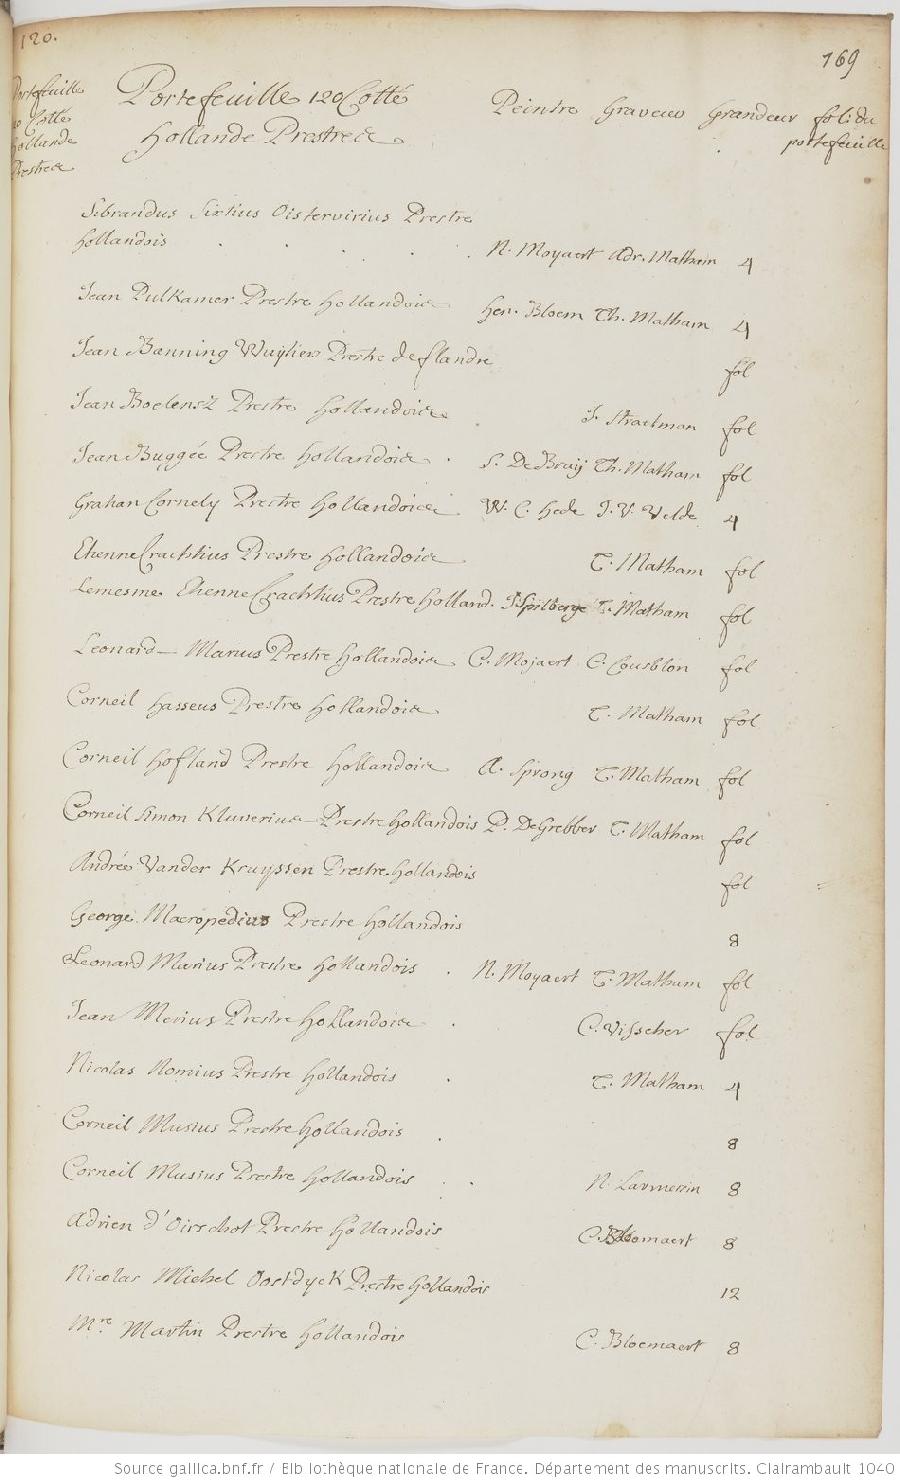 120.
169
Portefeuille
Cotté
hollande
Prestres
Portefeuille 120 Cotté
Hollande Prestres
Peintre Graveur Grandeur foli du
portefeuille
Sibrandus Sixtius Oistervirius Prestre
hollandois N. Moyaert Adr. Matham 4
Jean Pulkamer Prestre hollandois Hen. Bloem Th. Matham 4
Jean Banning Wuytiers Prestre de flandre fol
Jean Boelensz Prestre hollandois J. Straetman fol
Jean Buggée Prestre hollandois S. De Bray Th. Matham fol
Grahan Cornely Prestre hollandois W. C. hede J. V. Velde 4
Etienne Crachtius Prestre hollandois T. Matham fol
Lemesme Etienne Crachtius Prestre Holland. J. Spilberge T. Matham fol
Leonard Marius Prestre hollandois C. Mojaert C. Cousblon fol
Corneil hasseus Prestre hollandois T. Matham fol
Corneil hofland Prestre hollandois A. Sprong T. Matham fol
Corneil Simon Kluverius Prestre hollandois P. De Grebber T. Matham fol
André Vander Kruyssen Prestre hollandois fol
George Macropedius Prestre hollandois 8
Leonard Marius Prestre hollandois N. Moyaert T. Matham fol
Jean Merius Prestre hollandois C. Visscher fol
Nicolas Nomius Prestre hollandois T. Matham 4
Corneil Musius Prestre hollandois 8
Corneil Musius Prestre hollandois N. Larmessin 8
Adrien d'Oirschot Prestre hollandois C. Bloemaert 8
Nicolas Michel Oostdyck Prestre hollandois 12
Mre Martin Prestre hollandois C. Bloemaert 8
Source gallica.bnf.fr / Bibliothèque nationale de France. Département des manuscrits. Clairambault 1040